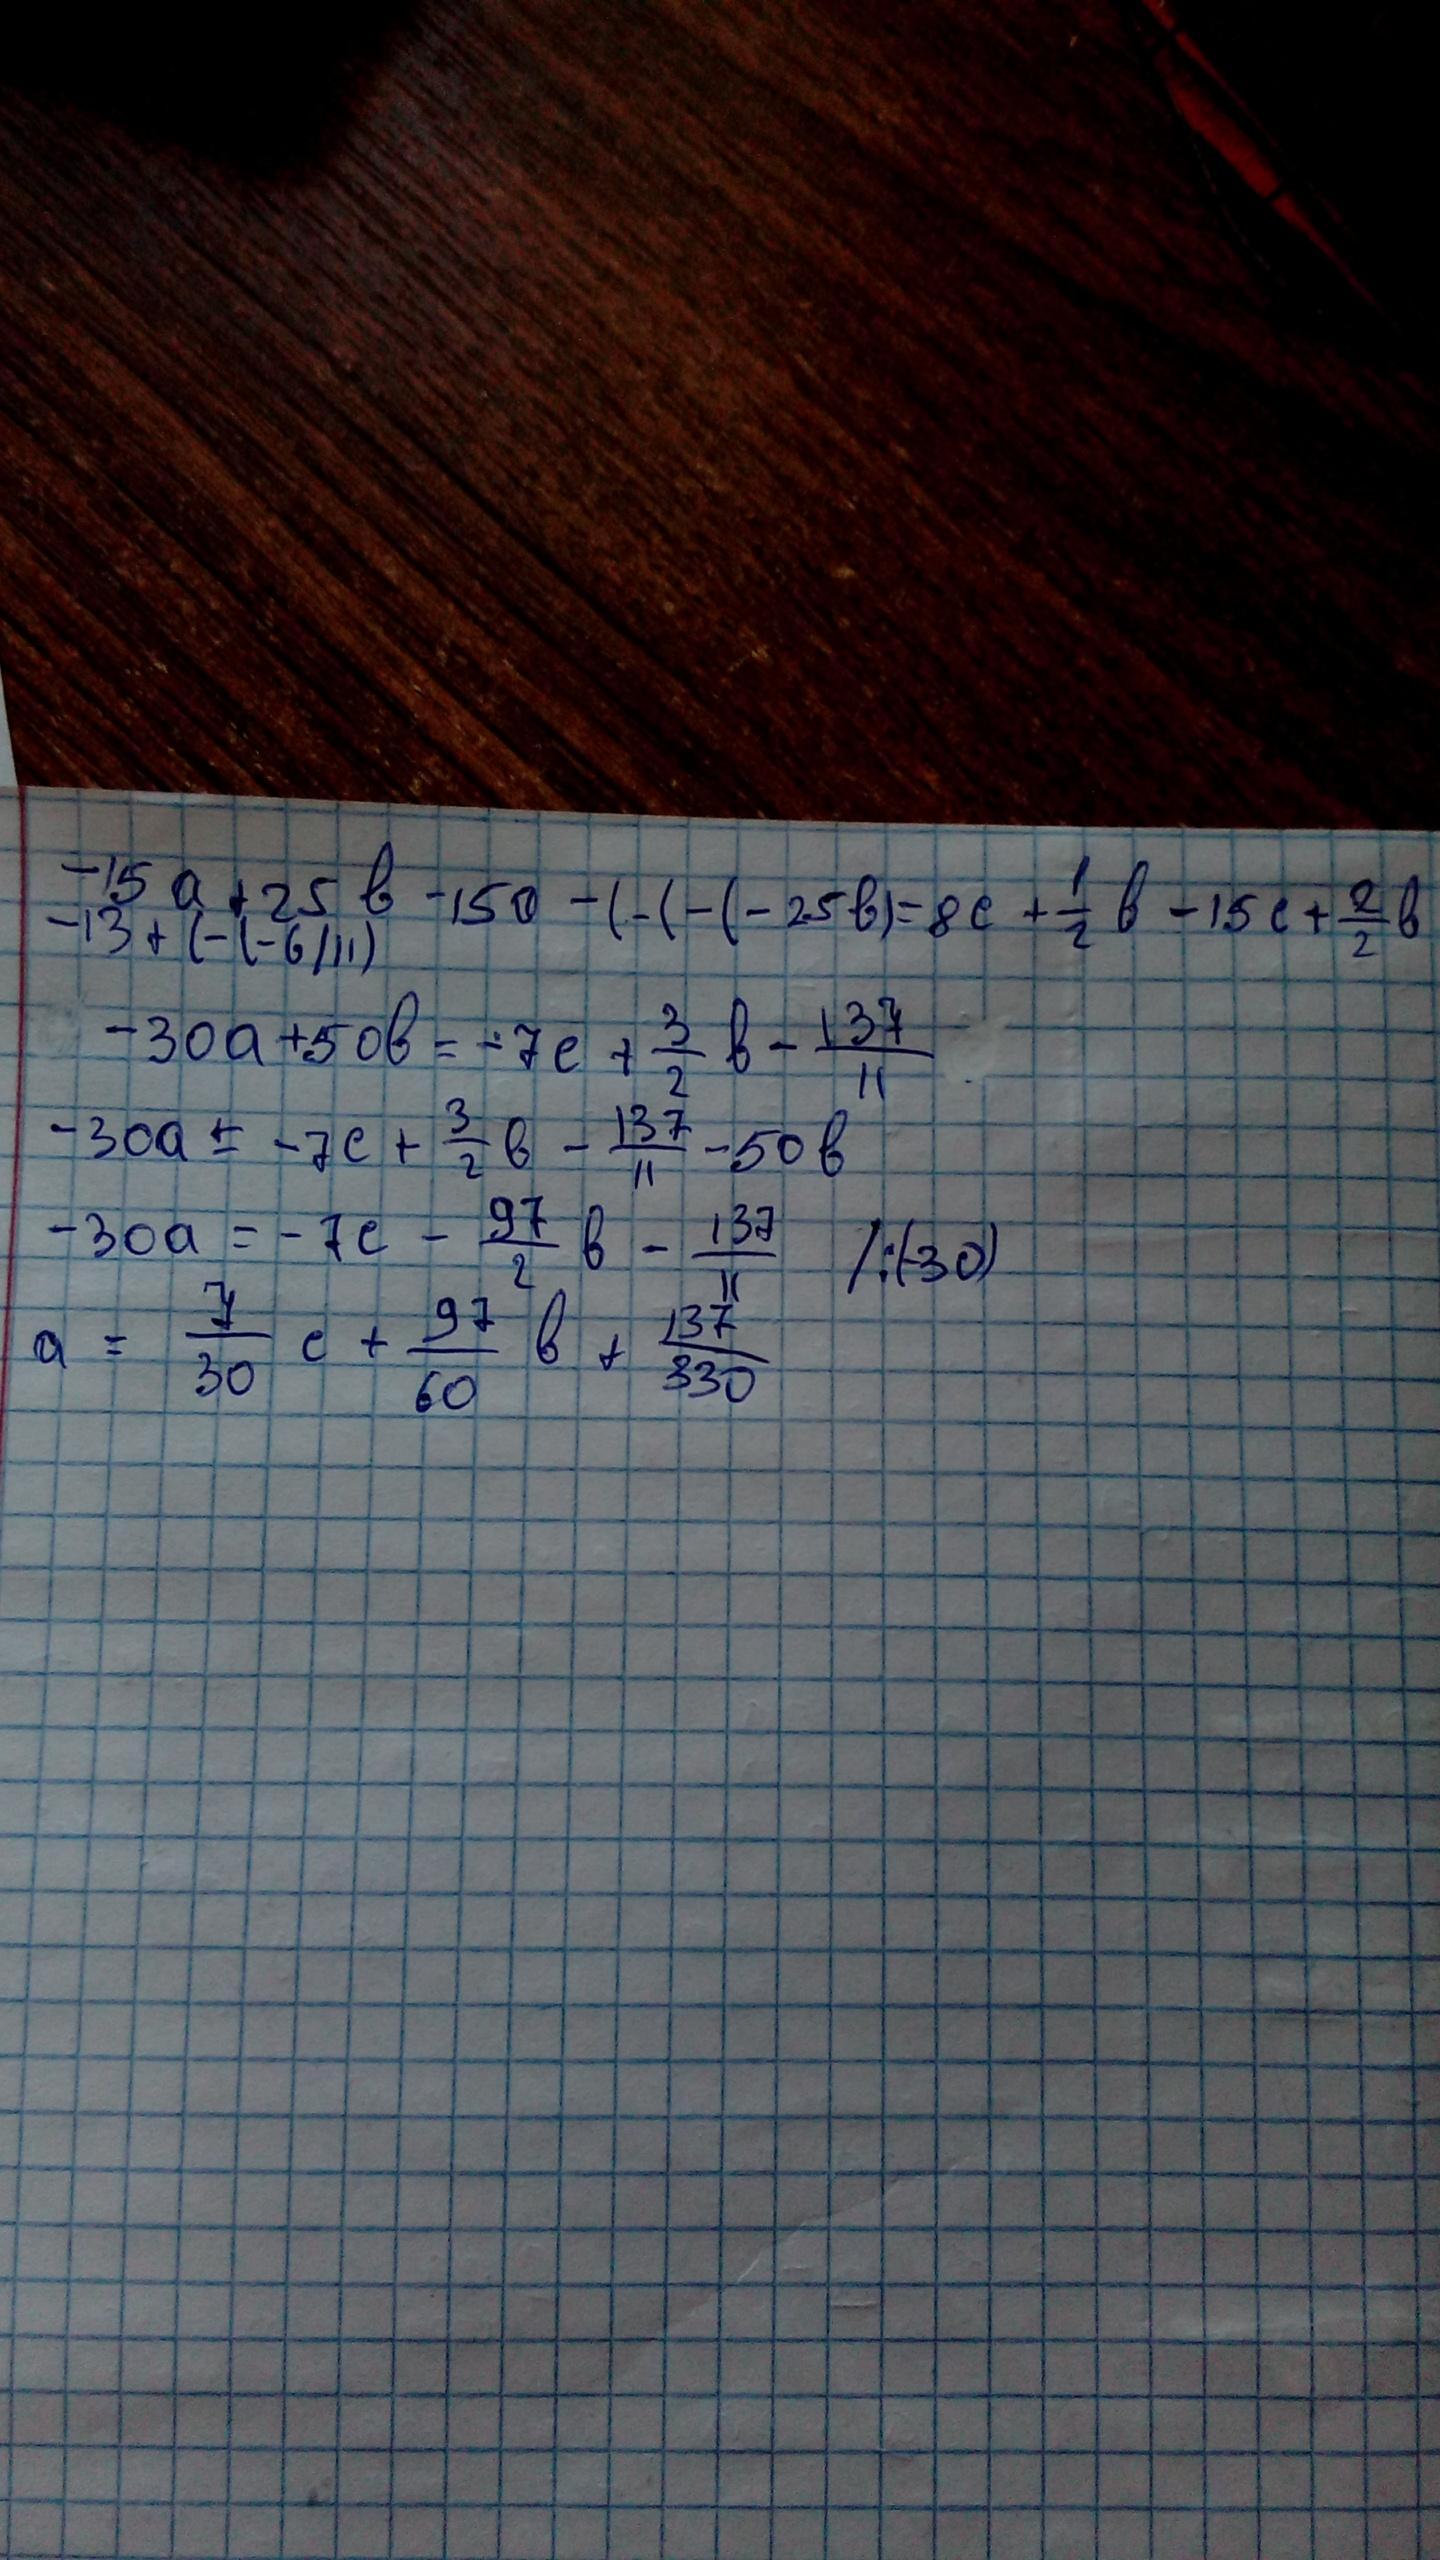 -15a + 25b - 15a - (-(-(-25b) = 8c + 1/2 b - 15c + 2/2 b
-13 + (-(-6/11)
-30a + 50b = -7c + 3/2 b - 137/11
-30a = -7c + 3/2 b - 137/11 - 50b
-30a = -7c - 97/2 b - 137/11 /:(-30)
a = 7/30 c + 97/60 b + 137/330